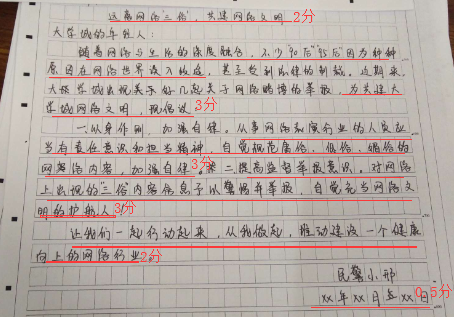 远离网络"三俗"，共建网络文明 2分
大学城的年轻人：
随着网络与生活的深度融合，不少"90后""95后"因为种种
原因在网络世界误入歧途，甚至受到法律的制裁。近期来，
大学城出现关于好几起关于网络赌博的举报，为共建大
学城网络文明，现倡议 3分
一.以身作则，加强自律。从事网络表演行业的人员应
当有责任意识和担当精神，自觉规范庸俗、低俗、媚俗的
网络内容，加强自律。3分 二.提高监督举报意识。对网络
上出现的"三俗"内容信息予以警惕并举报，自觉充当网络文
明的护航人 3分
让我们一起行动起来，从我做起，推动建设一个健康
向上的网络行业。2分
民警小邢
xx年xx月xx日 0.5分